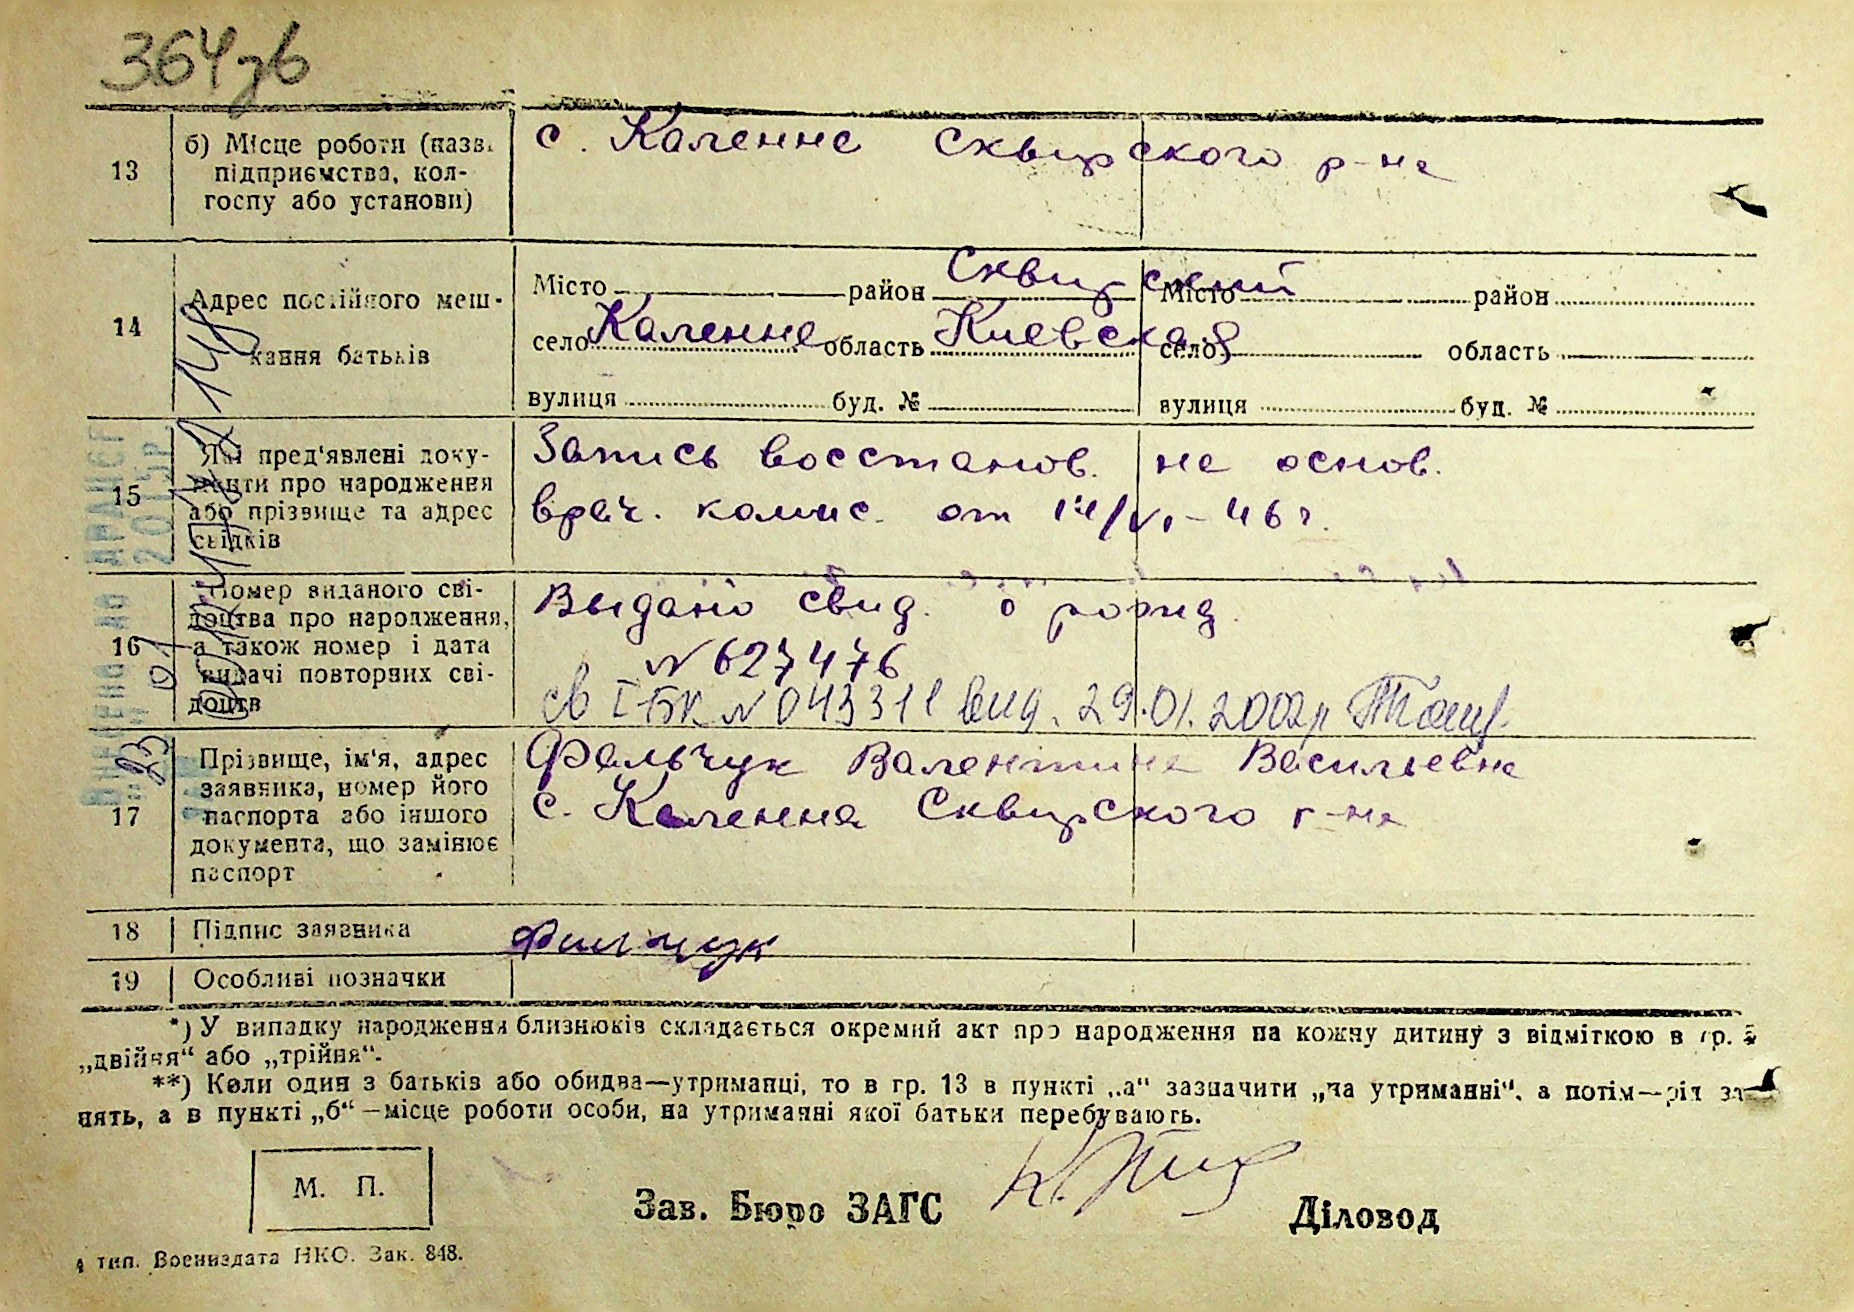 364зв
13
б) Місце роботи (назва
підприємства, кол-
госпу або установи)
с. Каленна Сквирского р-на
14
Адрес постійного меш-
кання батьків
Місто район Сквирский Місто район
село Каленна область Киевская село область
вулиця буд. № вулиця буд. №
15
Які пред'явлені доку-
менти про народження
або прізвище та адрес
свідків
Запись восстанов. на основ.
врач. комис. от 14/VI-46 г.
16
Номер виданого сві-
доцтва про народження,
а також номер і дата
видачі повторних сві-
доцтв
Выдано свид. о рожд.
№ 627476
св І-БК № 043311 вид. 29.01.2002р
17
Прізвище, ім'я, адрес
заявника, номер його
паспорта або іншого
документа, що замінює
паспорт
Фальчук Валентина Васильевна
с. Каленна Сквирского р-на
18
Підпис заявника
19
Особливі позначки
*) У випадку народження близнюків складається окремий акт про народження на кожну дитину з відміткою в гр.
„двійня" або „трійня".
**) Коли один з батьків або обидва—утриманці, то в гр. 13 в пункті „а" зазначити „на утриманні", а потім—рід за-
нять, а в пункті „б"—місце роботи особи, на утриманні якої батьки перебувають.
М. П.
Зав. Бюро ЗАГС
Діловод
тип. Воениздата НКО. Зак. 848.